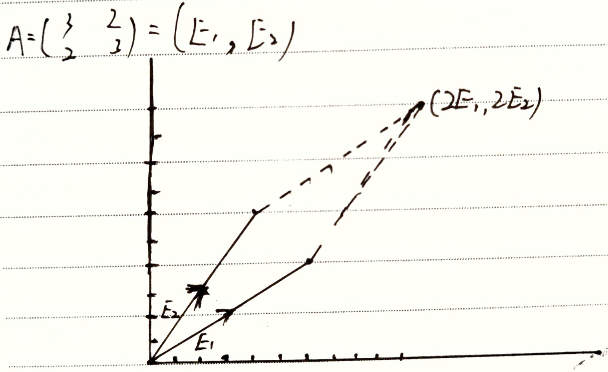 A = (3 2 2 3) = (E₁, E₂)
(2E₁, 2E₂)
E₂
E₁